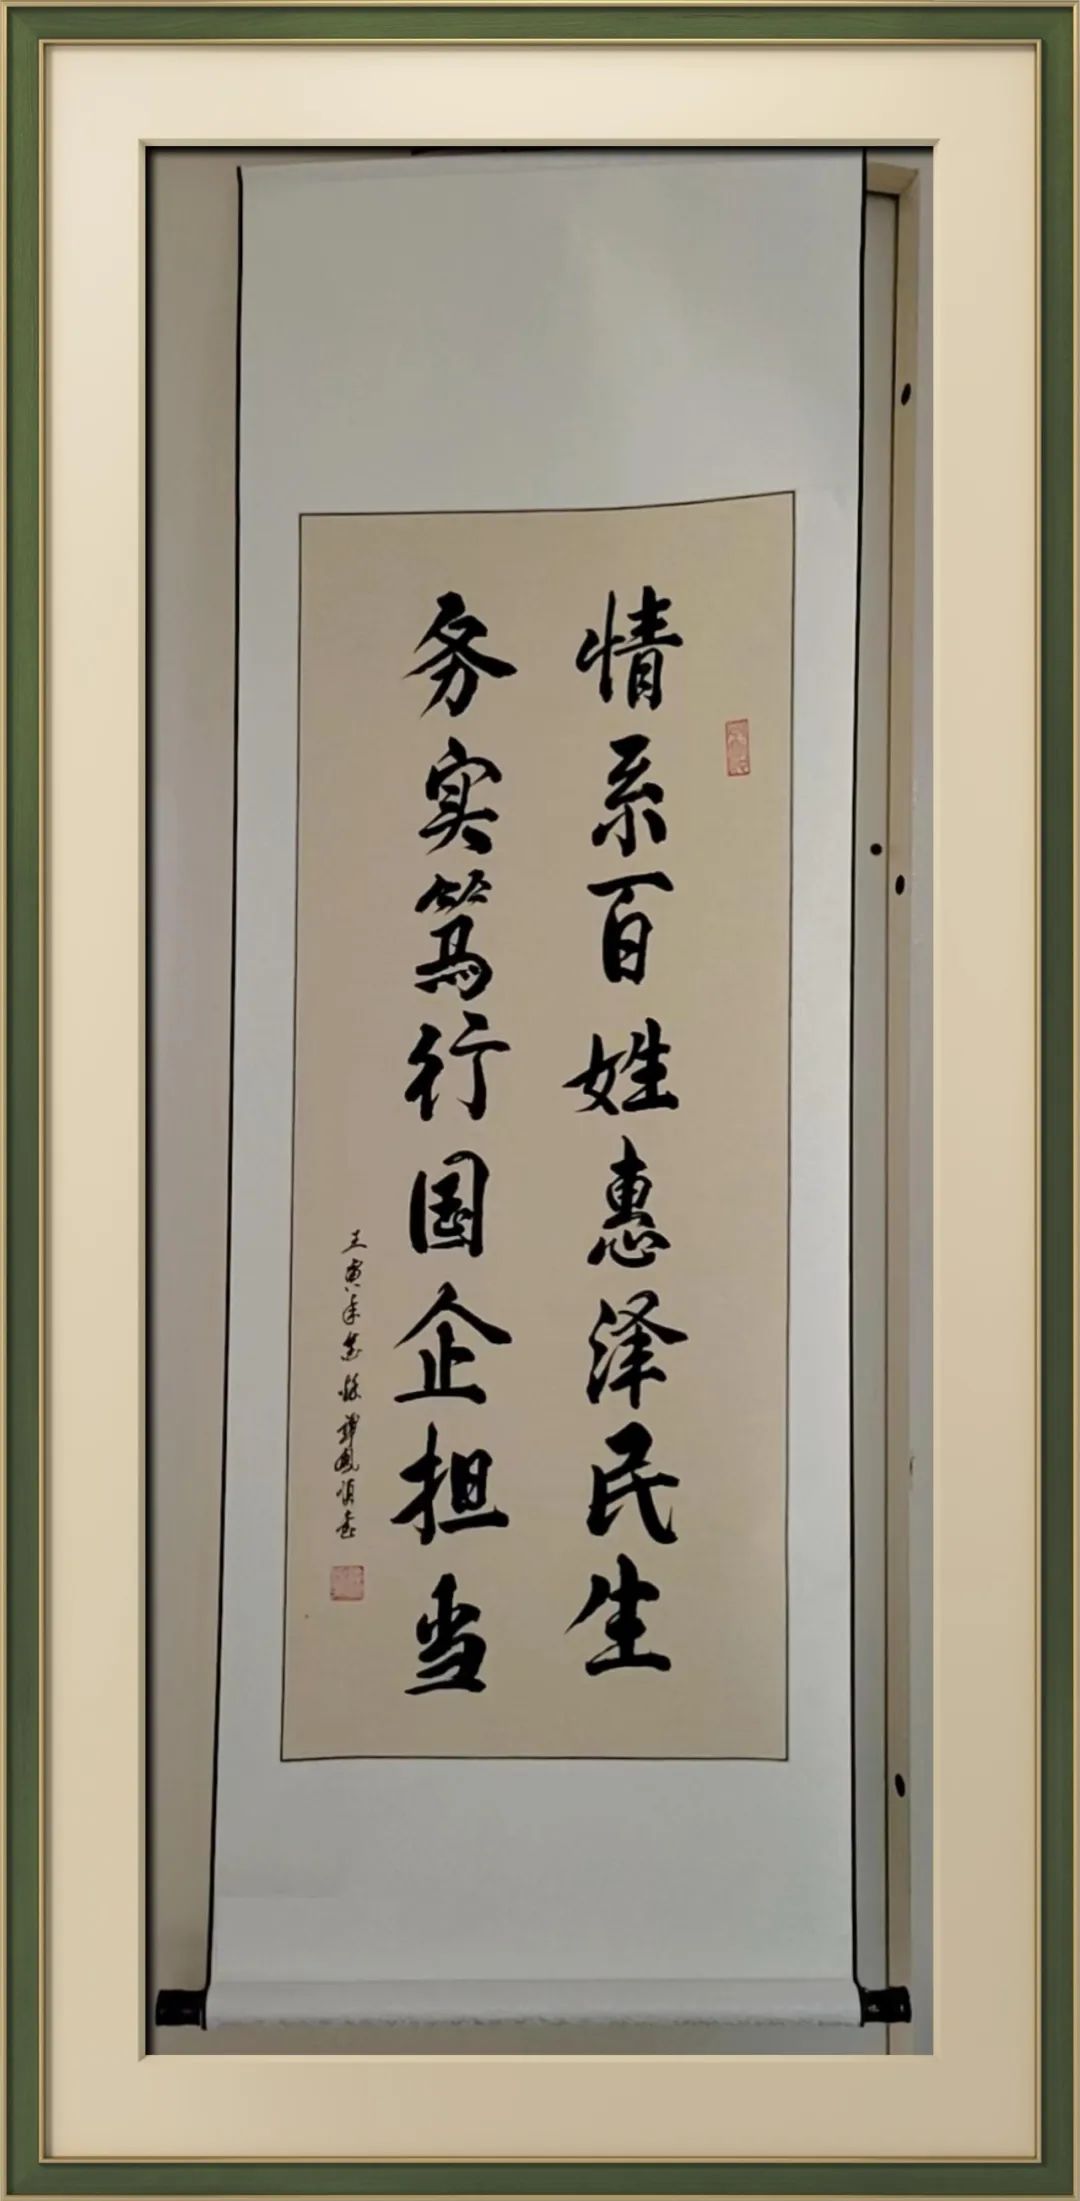 情系百姓惠泽民生
务实笃行国企担当
壬寅年